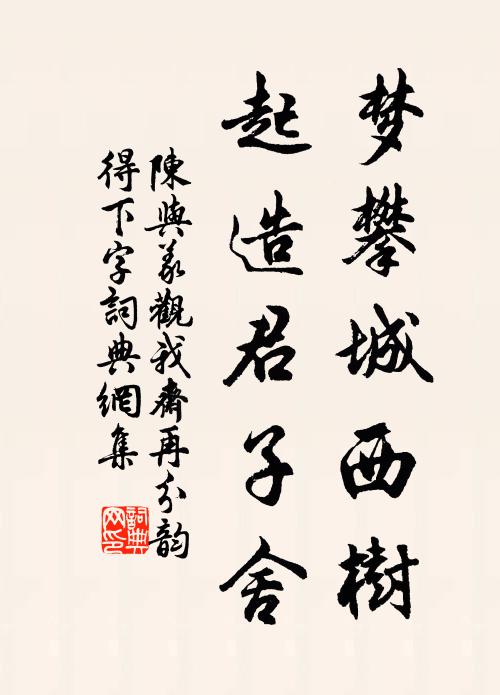 梦攀城西樹
起造君子舍
陳與義觀我齋再分韵
得下字詞典網集
詞典网印